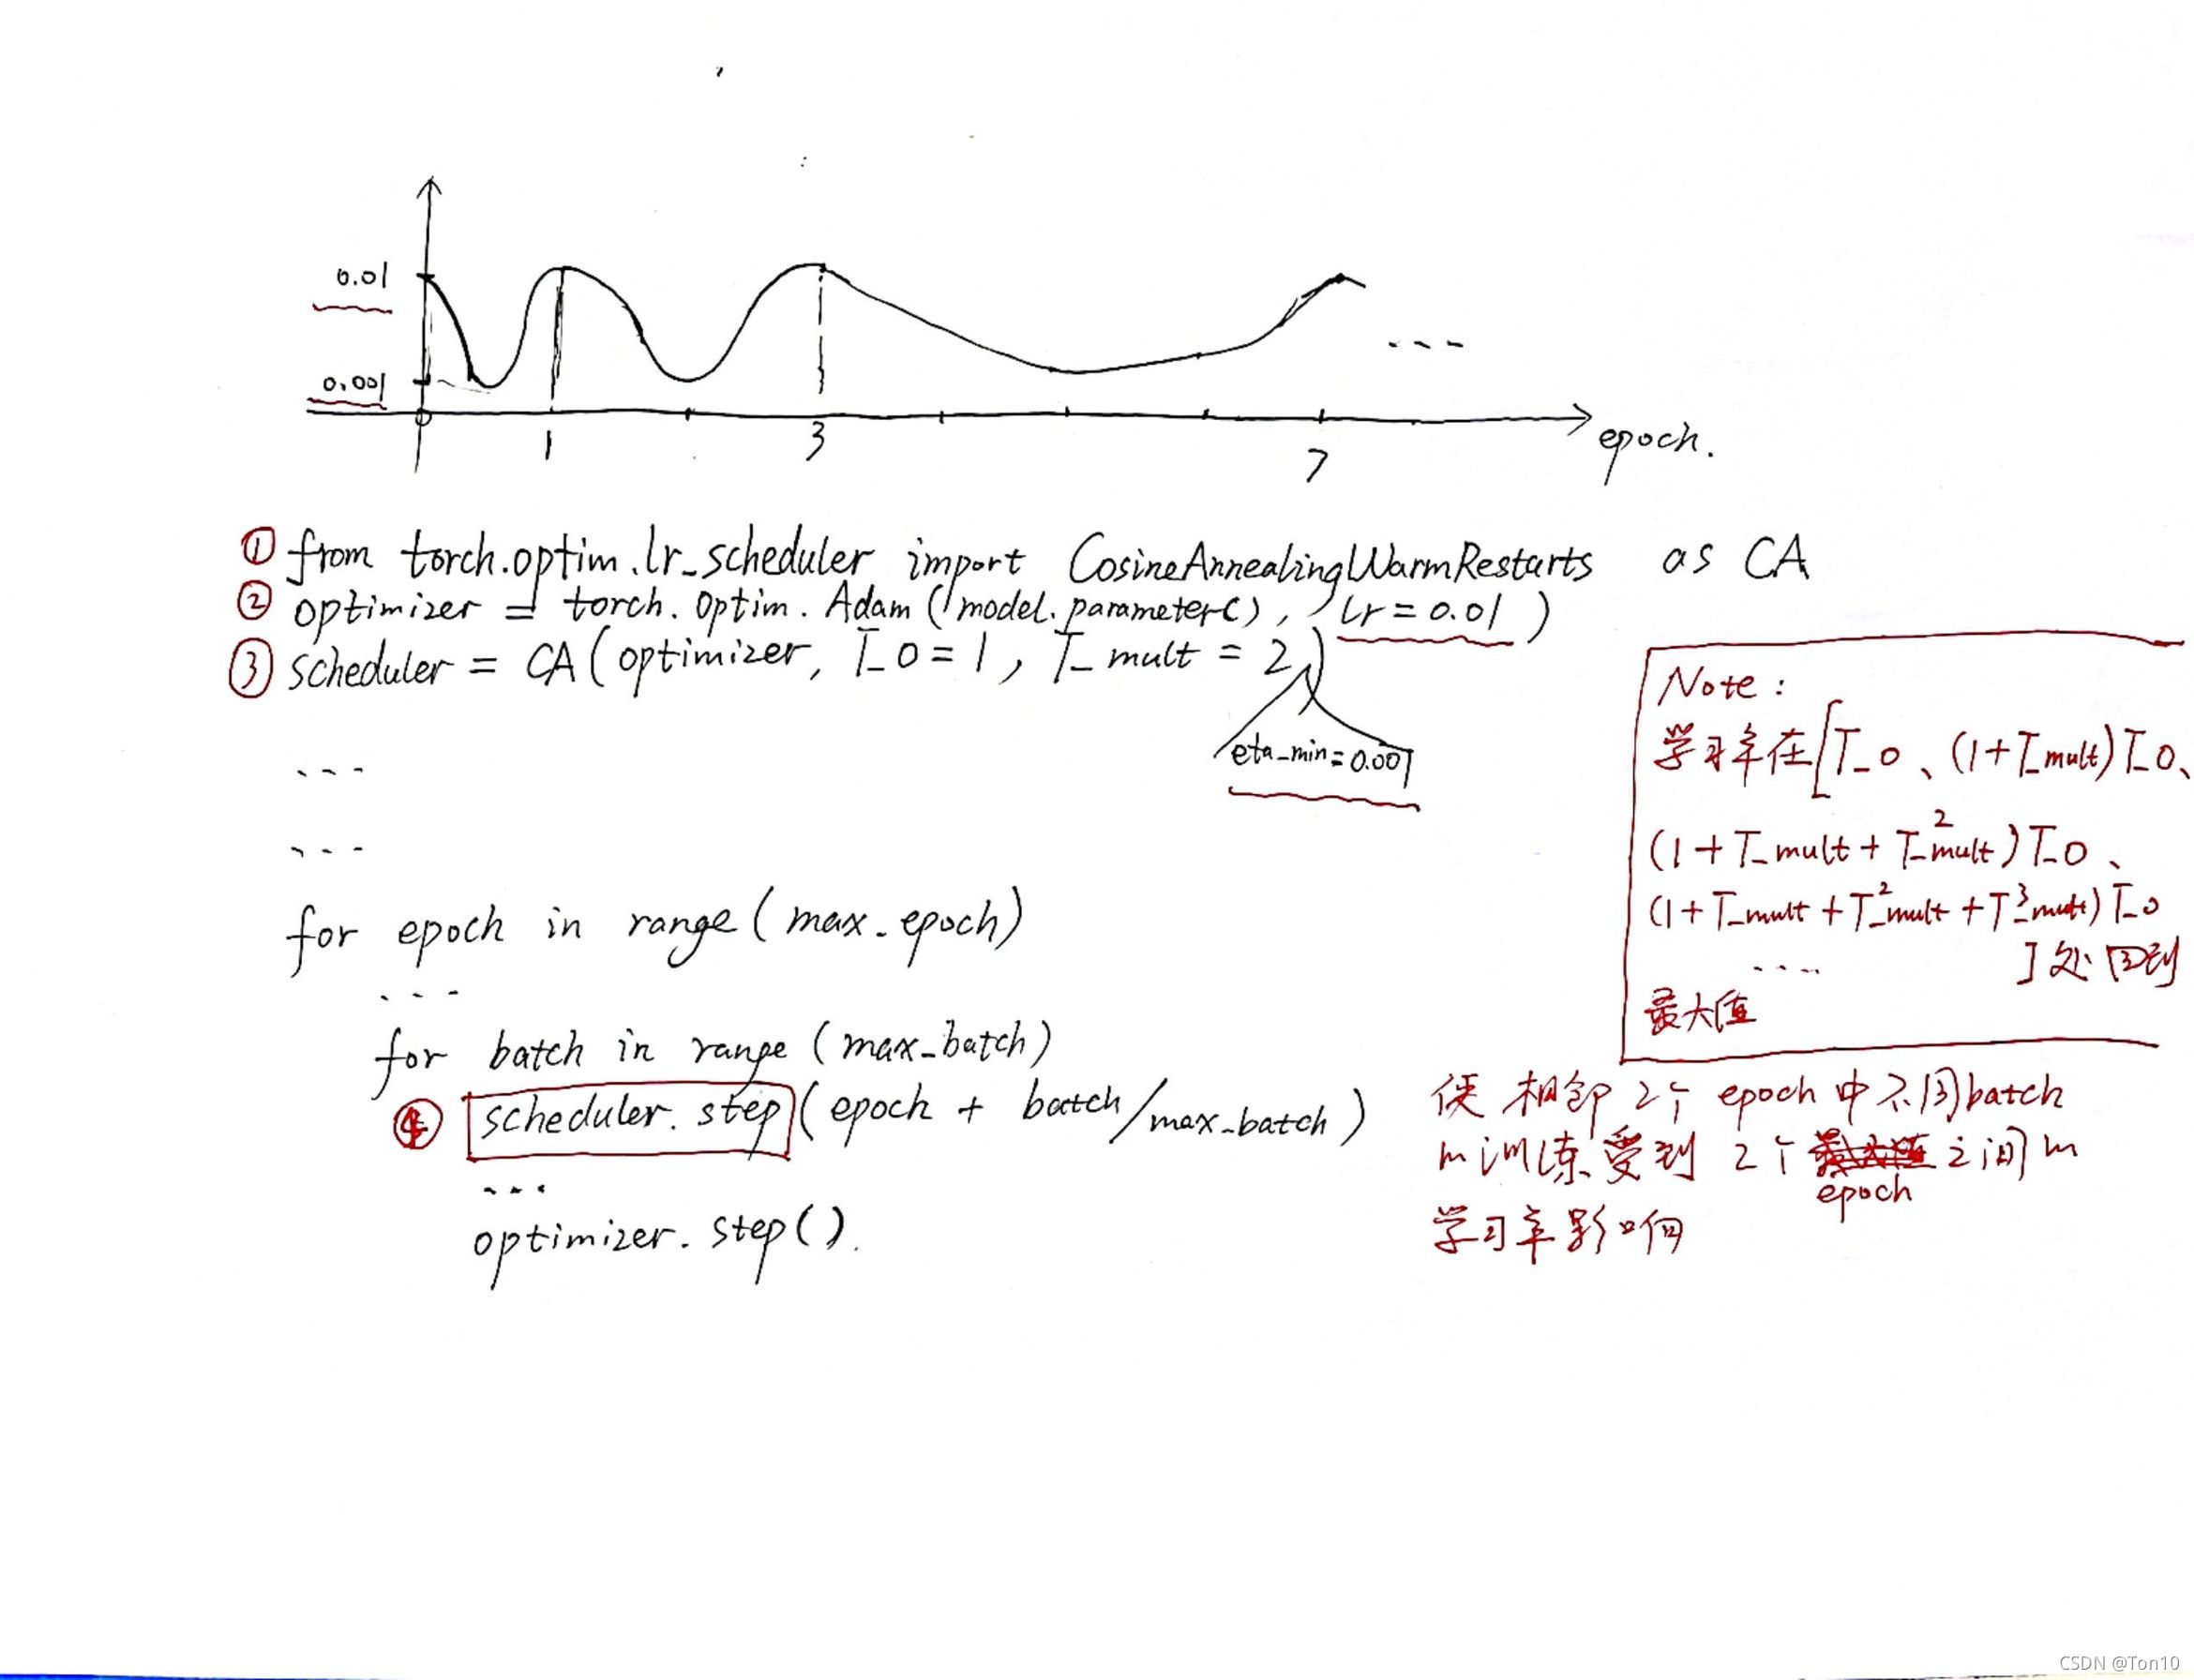 0.01
0.001
0
1
3
7
epoch.
① from torch.optim.lr_scheduler import CosineAnnealingWarmRestarts as CA
② optimizer = torch.optim.Adam(model.parameter(), lr=0.01)
③ scheduler = CA(optimizer, T_0=1, T_mult=2)
eta_min=0.001
...
...
for epoch in range(max_epoch)
...
for batch in range(max_batch)
④ scheduler.step(epoch + batch/max_batch)
...
optimizer.step().
Note:
学习率在[T_0、(1+T_mult)T_0、
(1+T_mult+T_mult²)T_0、
(1+T_mult+T_mult²+T_mult³)T_0
....]处回到
最大值
使相邻2个epoch中不同batch
的训练受到2个epoch之间的
学习率影响
CSDN @Ton10